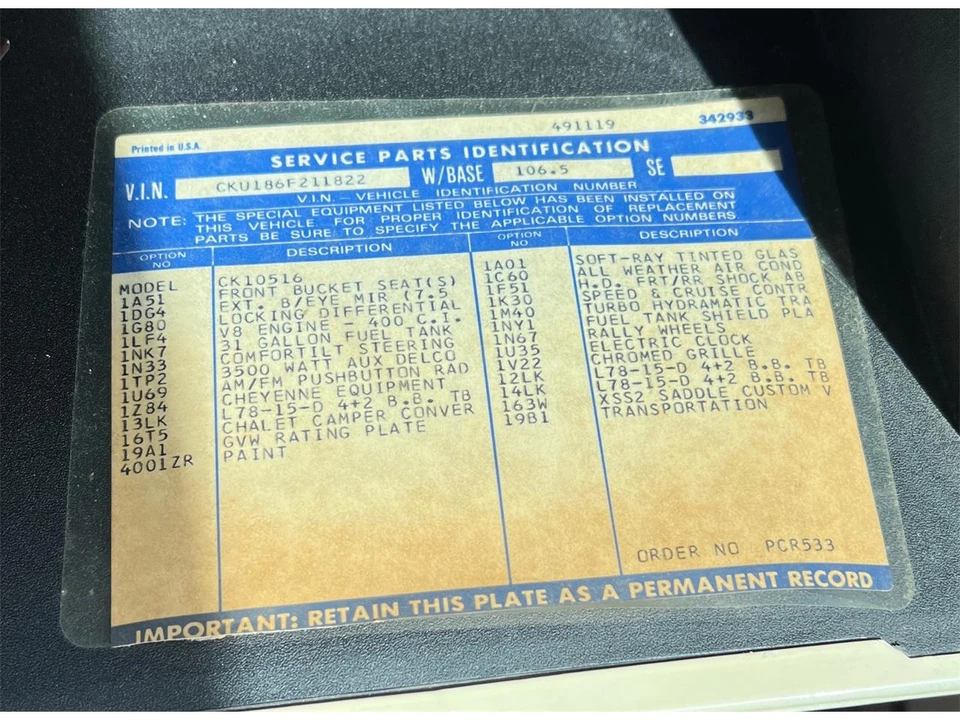 491119
342933
Printed in U.S.A.
SERVICE PARTS IDENTIFICATION
V.I.N. CKU186F211822 W/BASE 106.5 SE
V.I.N. - VEHICLE IDENTIFICATION NUMBER
NOTE: THE SPECIAL EQUIPMENT LISTED BELOW HAS BEEN INSTALLED ON
THIS VEHICLE FOR PROPER IDENTIFICATION OF REPLACEMENT
PARTS BE SURE TO SPECIFY THE APPLICABLE OPTION NUMBERS
OPTION NO DESCRIPTION
MODEL CK10516
1A51 FRONT BUCKET SEAT(S)
1DG4 EXT. B/EYE MIR (7.5
1G80 LOCKING DIFFERENTIAL
1LF4 V8 ENGINE - 400 C.I.
1NK7 31 GALLON FUEL TANK
1N33 COMFORTILT STEERING
1TP2 3500 WATT AUX DELCO
1U69 AM/FM PUSHBUTTON RAD
1Z84 CHEYENNE EQUIPMENT
13LK L78-15-D 4+2 B.B. TB
16T5 CHALET CAMPER CONVER
19A1 GVW RATING PLATE
4001ZR PAINT
OPTION NO DESCRIPTION
1A01 SOFT-RAY TINTED GLAS
1C60 ALL WEATHER AIR COND
1F51 H.D. FRT/RR SHOCK AB
1K30 SPEED & CRUISE CONTR
1M40 TURBO HYDRAMATIC TRA
1NY1 FUEL TANK SHIELD PLA
1N67 RALLY WHEELS
1U35 ELECTRIC CLOCK
1V22 CHROMED GRILLE
12LK L78-15-D 4+2 B.B. TB
14LK L78-15-D 4+2 B.B. TB
163W XSS2 SADDLE CUSTOM V
19B1 TRANSPORTATION
ORDER NO PCR533
IMPORTANT: RETAIN THIS PLATE AS A PERMANENT RECORD